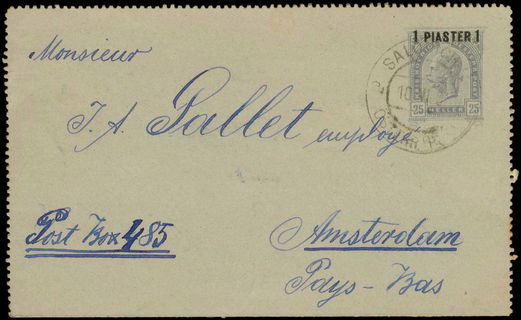 1 PIASTER 1
25 HELLER 25
Monsieur
J. A. Pallet employé
Post Box 485
Amsterdam
Pays-Bas